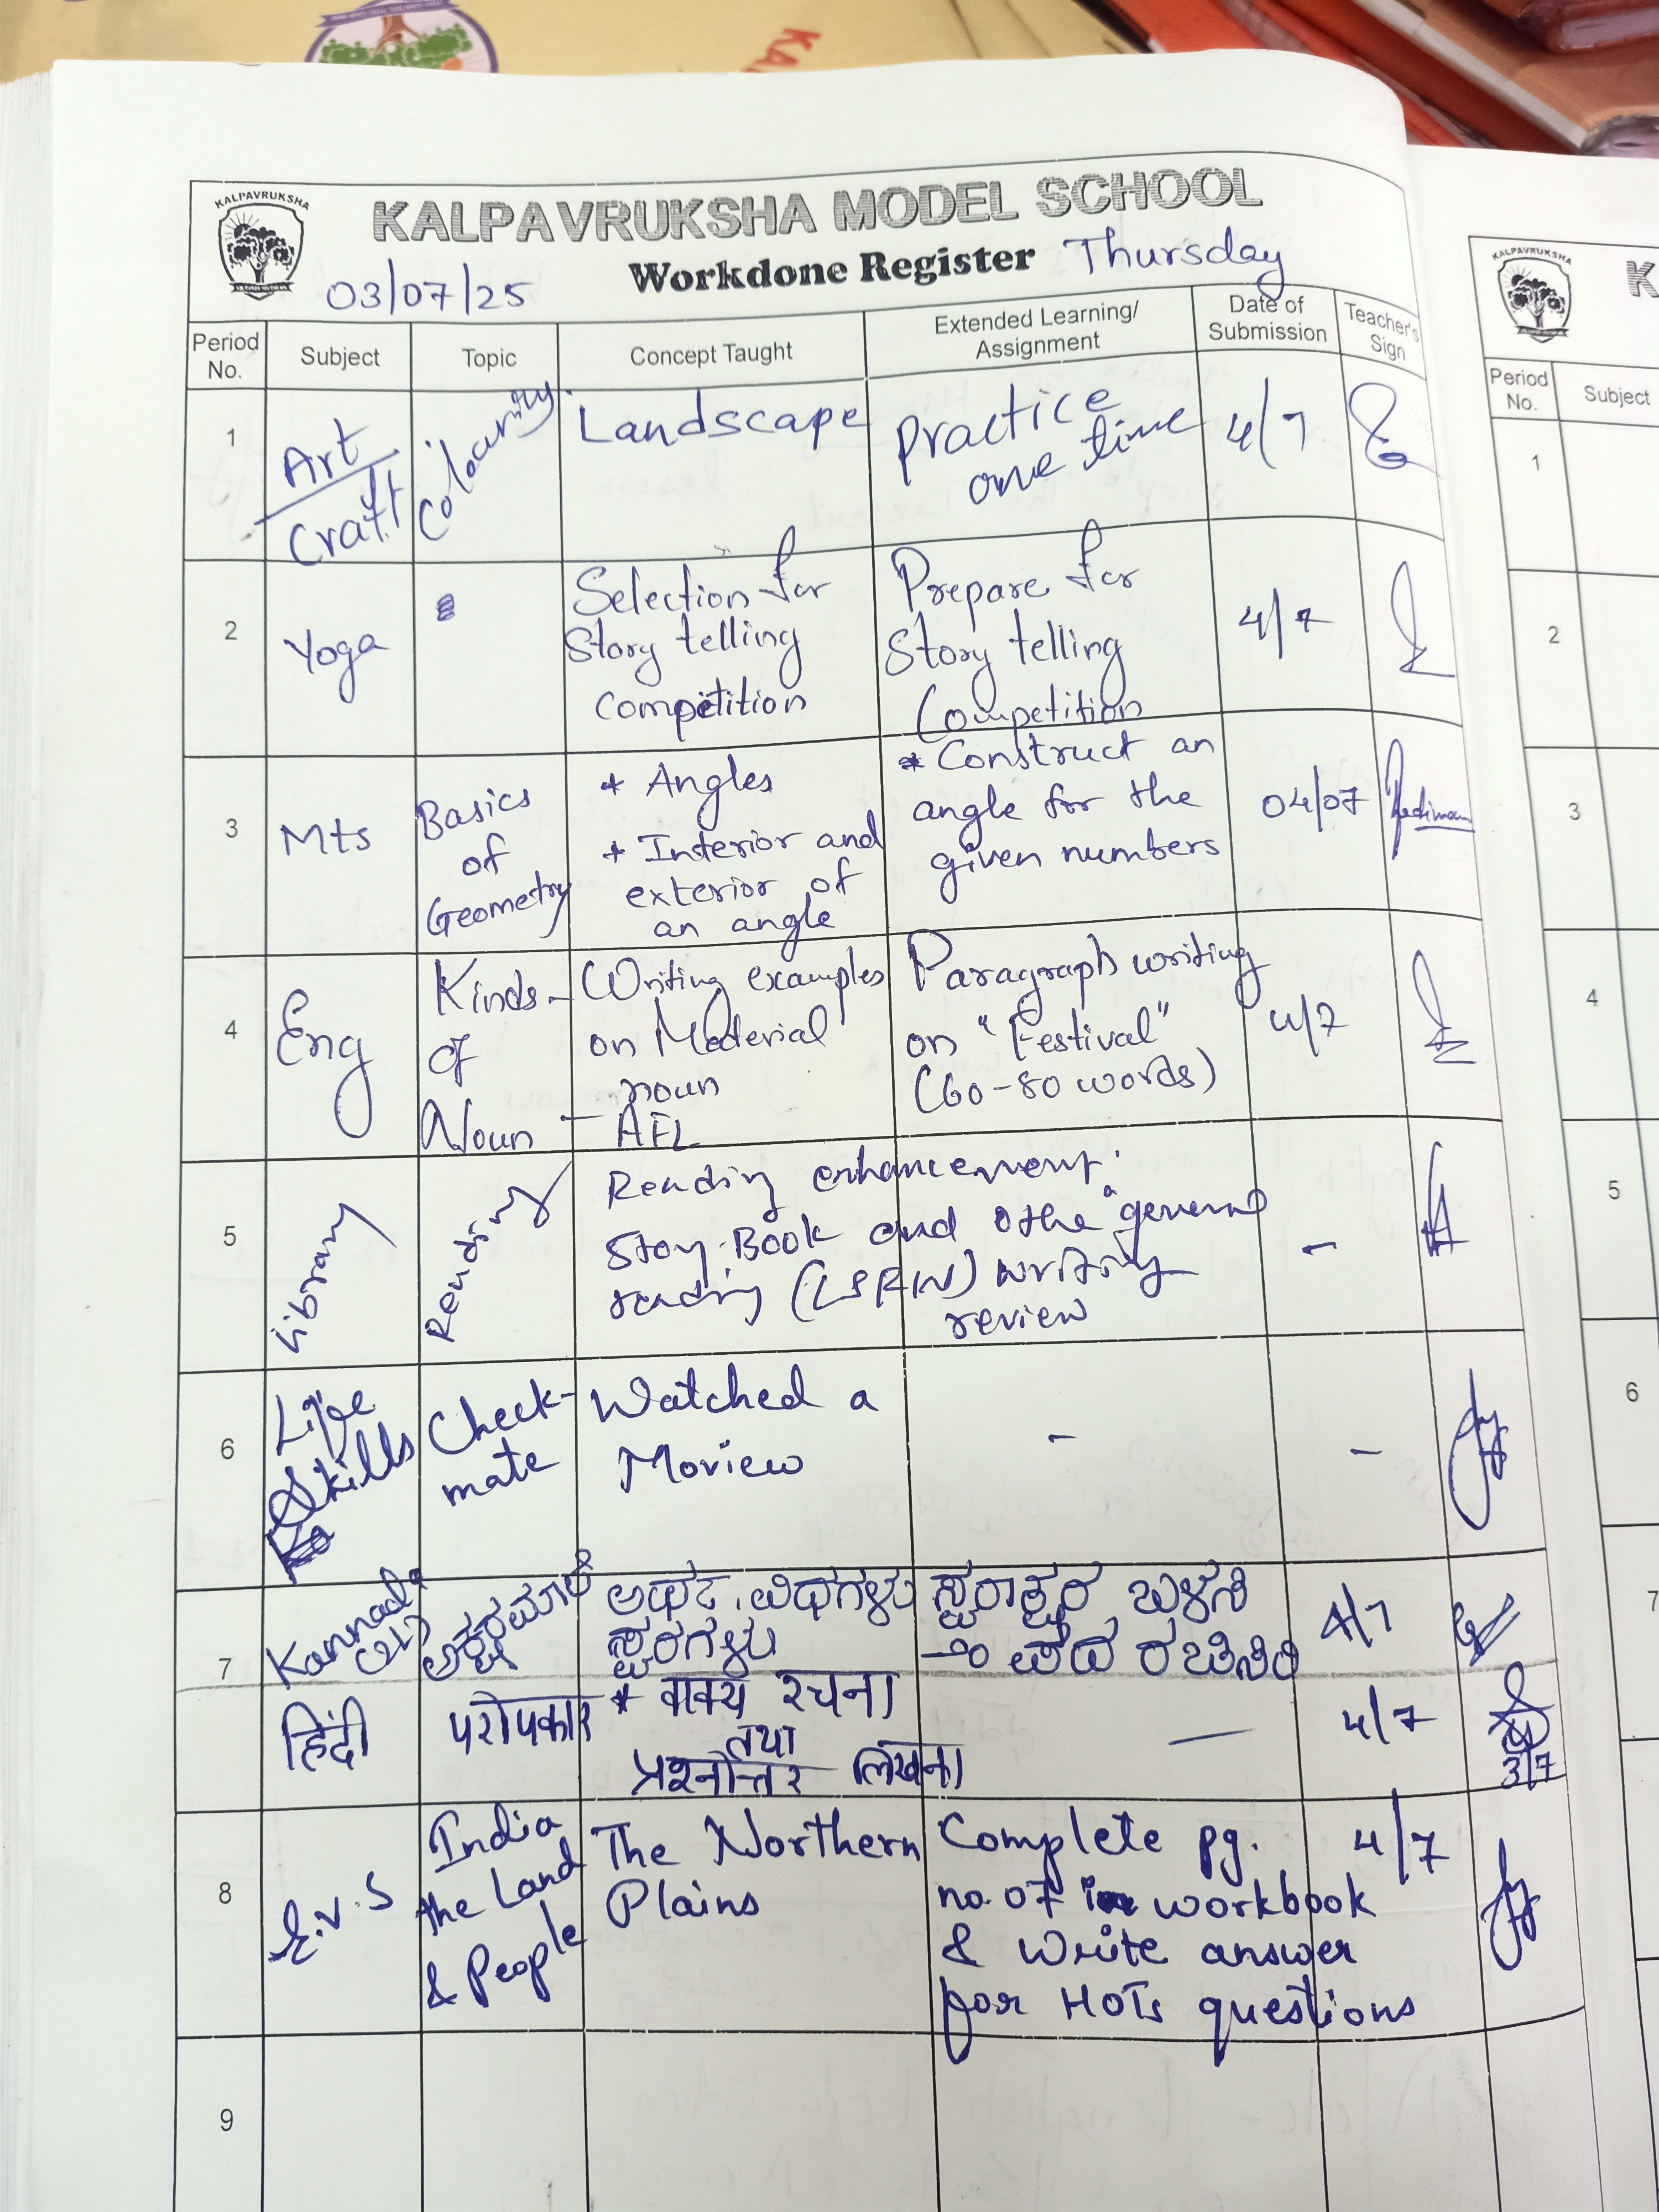 KALPAVRUKSHA
KALPAVRUKSHA MODEL SCHOOL
03/07/25 Workdone Register Thursday
Period No. Subject Topic Concept Taught Extended Learning/ Assignment Date of Submission Teacher's Sign
1 Art/Craft Colouring Landscape Practice one time 4/7
2 Yoga Selection for Story telling competition Prepare for Story telling Competition 4/7
3 Mts Basics of Geometry * Angles * Interior and exterior of an angle * Construct an angle for the given numbers 04/07
4 Eng Kinds of Noun - Writing examples on Material noun - AFL Paragraph writing on "Festival" (60-80 words) 4/7
5 Library Reading Reading enhancement. Story Book and Othe general reading (LSRW) writing review -
6 Life Skills Check-mate Watched a Moview - -
7 Kannada ಅಕ್ಷರಮಾಲೆ ಅರ್ಥ, ವಿಧಗಳು ಸ್ವರಗಳು ಸ್ವರಾಕ್ಷರ ಬಳಸಿ ಪದ ರಚಿಸಿರಿ 4/7
हिंदी परोपकार * वाक्य रचना तथा प्रश्नोत्तर लिखना — 4/7 3/7
8 E.V.S India the Land & People The Northern Plains Complete pg. no. 07 in workbook & write answer for HOTs questions 4/7
9
KALPAVRUKSHA
K
Period No. Subject
1
2
3
4
5
6
7